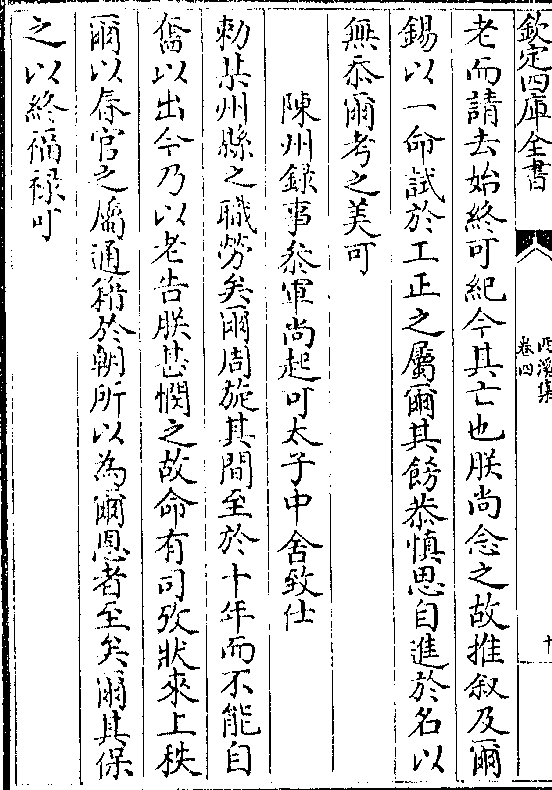 欽定四庫全書
西溪集
卷四
十
老而請去始終可紀今其亡也朕尚念之故推叙及爾
錫以一命試於工正之屬爾其飭恭慎思自進於名以
無忝爾考之美可
陳州錄事參軍尚起可太子中舍致仕
勅某州縣之職勞矣爾周旋其間至於十年而不能自
奮以出今乃以老告朕甚憫之故命有司攷狀來上秩
爾以春官之屬通籍於朝所以為爾恩者至矣爾其保
之以終福禄可